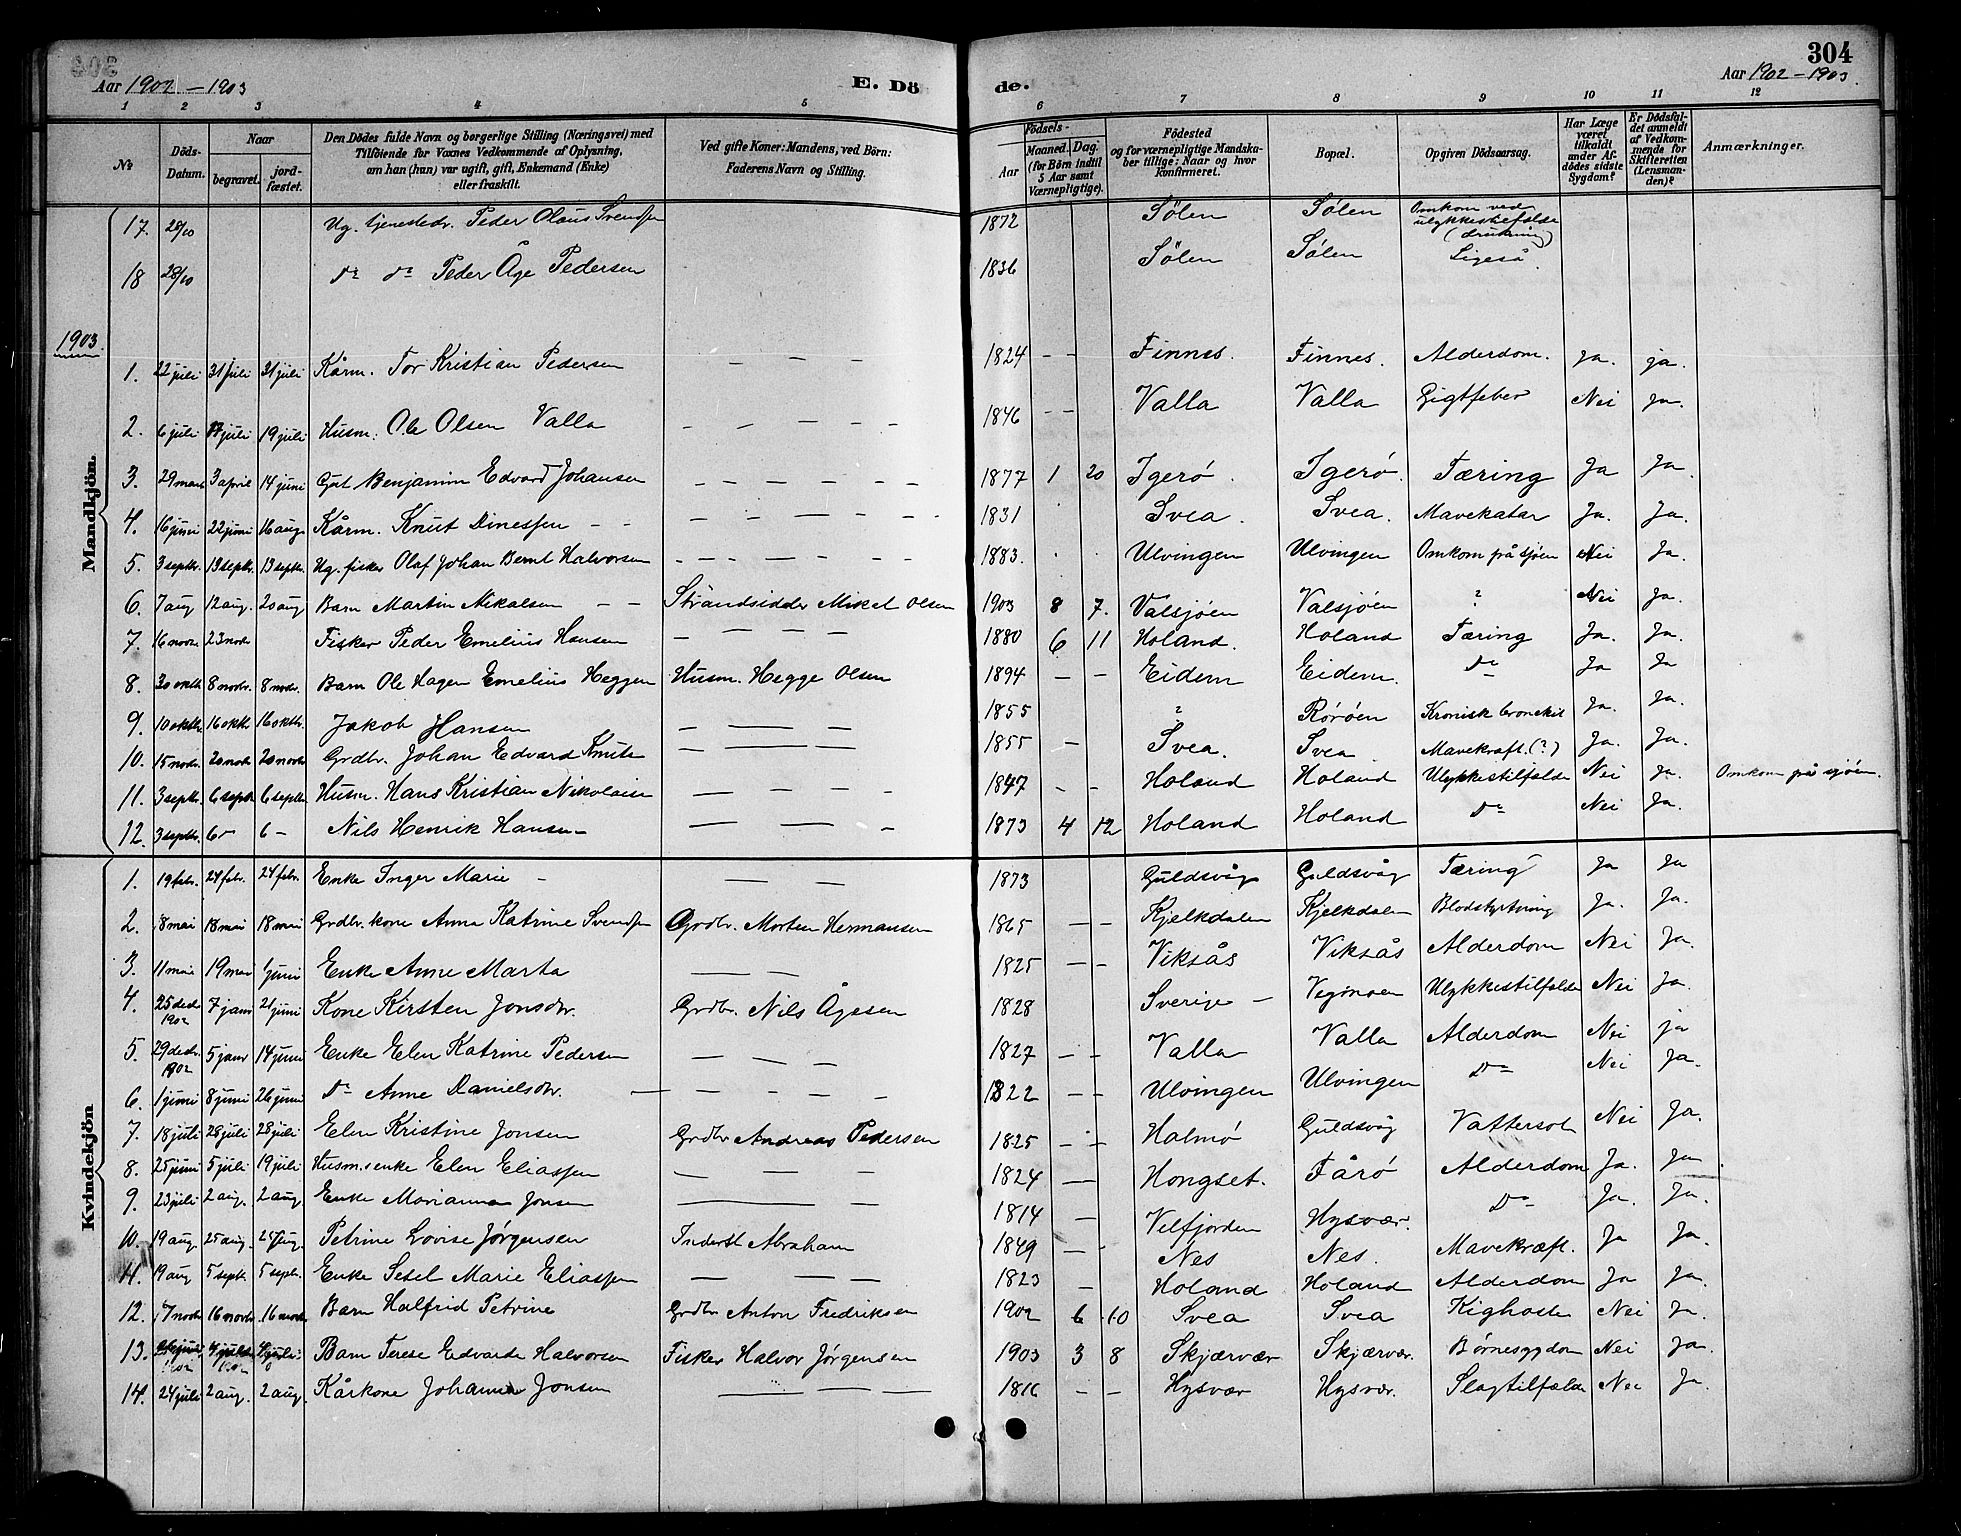 304
Aar 1902 – 1903
E. Dö
de.
Aar 1902 – 1903.
1 2 3 4 5 6 7 8 9 10 11 12
No
Döds-Datum.
Naar
begravet.
jord-fæstet.
Den Dödes fulde Navn og borgerlige Stilling (Næringsvei) med
Tilföiende for Voxnes Vedkommende af Oplysning,
om han (hun) var ugift, gift, Enkemand (Enke)
eller fraskilt.
Ved gifte Koner: Mandens, ved Börn:
Faderens Navn og Stilling.
Födsels-
Aar
Maaned. Dag.
(for Börn indtil
5 Aar samt
Værnepligtige).
Födested
og for værnepligtige Mandska-
ber tillige: Naar og hvor
konfirmeret.
Bopæl.
Opgiven Dödsaarsag.
Har Læge
været
tilkaldt
under Af-
dödes sidste
Sygdom?
Er Dödsfal-
det anmeldt
af Vedkom-
mende for
Skifteretten
(Lensman-
den)?
Anmærkninger.
17. 28/10 Ug. tjenestedr. Peder Olaus Svendsen 1872 Sølen Sølen Omkom ved ulykkestilfælde (drukning)
18 28/10 do do Peder Åge Pedersen 1836 Sølen Sølen Ligeså.
1903.
Mandkjön.
1. 22 juli 31 juli 31 juli Kårm. Tor Kristian Pedersen – – – 1824 – – Finnes. Finnes. Alderdom. ja. ja.
2. 6 juli 17 juli 19 juli Husm. Ole Olsen Valla – – – – – 1846 – – Valla Valla Gigtfeber Nei Ja.
3. 29 mars 3 april 14 juni Gut Benjamin Edvard Johansen – – – – – – 1877 1 20 Igerø. Igerø. Tæring Ja Ja.
4. 16 juni 22 juni 16 aug. Kårm. Knut Dinessen – – – – – – 1831 Svea. Svea. Mavekatar Ja. Ja.
5. 3 septbr. 13 septbr. 13 septbr. Ug. fisker Olaf Johan Bernt Halvorsen – – – – – 1883. Ulvingen Ulvingen Omkom på sjøen Nei Ja.
6. 7 aug 12 aug. 20 aug Barn Martin Nikalsen – – Strandsidder Mikal Olsen 1903 8 7. Valsjøen Valsjøen ? Nei Ja.
7. 16 novbr. 23 novbr Fisker Peder Emelius Hansen – – – – 1880 6 11 Holand. Holand Tæring Ja. Ja.
8. 30 oktb 8 novbr. 8 novbr. Barn Ole Hagen Emelius Heggen Husm. Hegge Olsen 1894 – – Eidem Eidem. do Ja Ja
9. 10 oktbr. 16 oktbr. 16 oktbr. Jakob Hansen – – – 1855 ? Rørøen Kronisk bronckit Ja. Ja.
10. 15 novbr. 20 novbr 20 novbr Grdbr. Johan Edvard Knuts – – – 1855 – Svea. Svea Mavekræft. (?) Ja. Ja.
11. 3 septbr. 6 septbr 6 septbr Husm. Hans Kristian Nikolaise – – – 1847 – – Holand Holand Ulykkestilfælde Nei Ja. Omkom på sjøen.
12. 3 septbr. 6 – 6 – Nils Henrik Hansen – – – 1873 4 12 Holand Holand do Nei Ja.
Kvindekjön
1. 19 febr. 24 febr. 24 febr. Enke Inger Marie – – – 1873 Guldsvåg Guldsvåg Tæring Ja Ja
2. 8 mai 18 mai 18 mai Grdbr. kone Anna Katrine Svendsen Grdbr. Morten Hermansen 1865 – – Kjelkdalen Kjelkdalen Blodstyrtning Ja. Ja.
3. 11 mai 19 mai 1 juni Enke Anne Marta – – 1825 – – Viksås Viksås Alderdom Nei Ja.
4. 25 decbr. 1902 7 janr 21 juni Kone Kirsten Jonsdtr. Grdbr. Nils Ågesen 1828 Sverige – Vegmoen Ulykkestilfælde Nei Ja.
5. 29 decbr. 1902 5 janr 14 juni Enke Elen Katrine Pedersen – – – 1827 – – Valla Valla Alderdom Nei ja
6. 1 juni 8 juni 26 juni do Anne Danielsdtr. – – – – – 1822 – – Ulvingen Ulvingen do Nei Ja.
7. 18 juli 28 juli 28 juli Elen Kristine Jonsen Grdbr Andreas Pedersen 1825 – – Halmø Guldsvåg Vattersot Nei Ja.
8. 25 juni 5 juli 19 juli Husm.senke Elen Eliassen – – – 1824 – Hongset. Fårø Alderdom Ja. Ja
9. 23 juli 2 aug. 2 aug. Enke Marianna Jonsen – – 1814 – Velfjorden Hysvær. do Ja. Ja.
10. 19 aug. 25 aug. 25 aug. Petrine Lovise Jørgensen Inderst Abraham 1849 – – Nes Nes. Mavekræft. Ja Ja.
11. 19 aug 5 septr. 5 septr. Enke Sesel Marie Eliassen – – – 1823 Holand Holand Alderdom Ja Ja.
12. 7 novbr 16 novbr. 16 novbr. Barn Halfrid Petrine Grdbr Anton Fredriksen 1902 6 10 Svea Svea Kighoste Nei Ja.
13. Barn Terese Edvarda Halvorsen Fisker Halvor Jørgensen 1903 3 8 Skjærvær Skjærvær. Børnesygdom Nei Ja.
14. 24 juli 2 aug. 2 aug. Kårkone Johanna Jonsen – – – 1816 – – Hysvær Hysvær. Slagtilfælde Nei Ja.